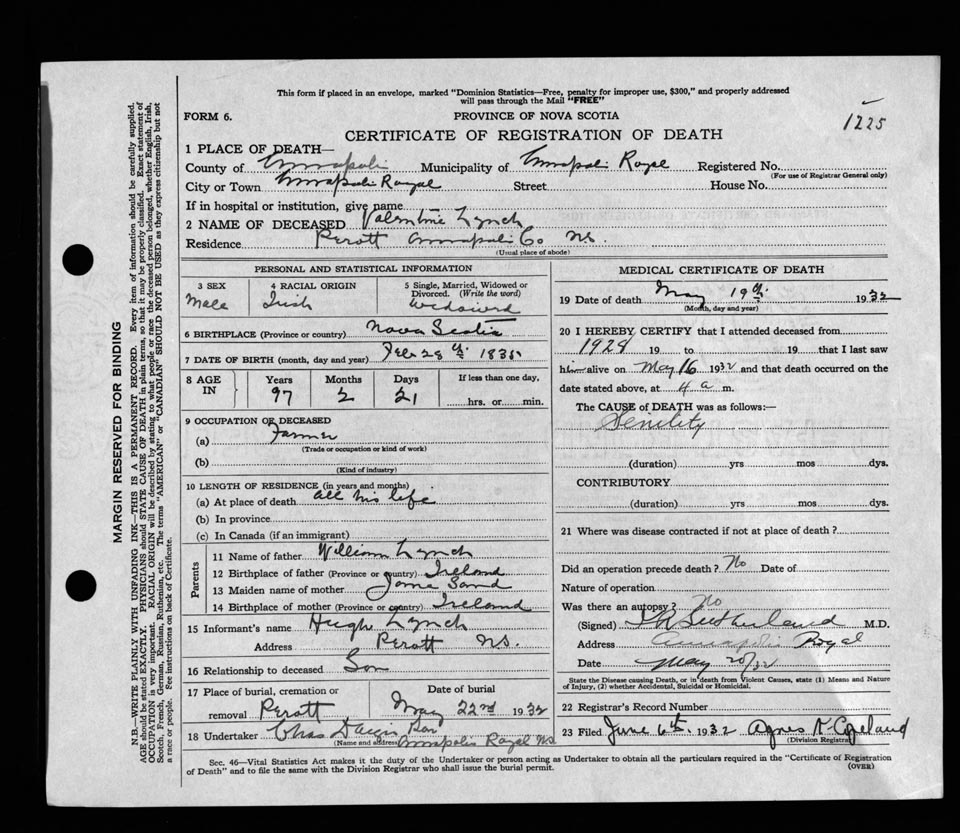 This form if placed in an envelope, marked "Dominion Statistics—Free, penalty for improper use, $300," and properly addressed
will pass through the Mail "FREE"
FORM 6.
PROVINCE OF NOVA SCOTIA
1225
CERTIFICATE OF REGISTRATION OF DEATH
1 PLACE OF DEATH—
County of Annapolis Municipality of Annapolis Royal Registered No.
(For use of Registrar General only)
City or Town Annapolis Royal Street House No.
If in hospital or institution, give name
2 NAME OF DECEASED Valentine Lynch
Residence Perott Annapolis Co N.S.
(Usual place of abode)
PERSONAL AND STATISTICAL INFORMATION
3 SEX 4 RACIAL ORIGIN 5 Single, Married, Widowed or
Divorced. (Write the word)
Male Irish Widowerd
6 BIRTHPLACE (Province or country) Nova Scotia
7 DATE OF BIRTH (month, day and year) Feb 28th 1835
8 AGE IN Years Months Days If less than one day,
97 2 21 hrs. or min.
9 OCCUPATION OF DECEASED
(a) Farmer
(Trade or occupation or kind of work)
(b)
(Kind of industry)
10 LENGTH OF RESIDENCE (in years and months)
(a) At place of death all his life
(b) In province
(c) In Canada (if an immigrant)
Parents
11 Name of father William Lynch
12 Birthplace of father (Province or country) Ireland
13 Maiden name of mother Jane
14 Birthplace of mother (Province or country) Ireland
15 Informant's name Hugh Lynch
Address Perott N.S.
16 Relationship to deceased Son
17 Place of burial, cremation or Date of burial
removal Perott May 22nd 1932
18 Undertaker Chas Son
(Name and address) Annapolis Royal N.S.
MEDICAL CERTIFICATE OF DEATH
19 Date of death May 19th 1932
(Month, day and year)
20 I HEREBY CERTIFY that I attended deceased from
1928 19 to 19 that I last saw
him alive on May 16 1932 and that death occurred on the
date stated above, at 4 a m.
The CAUSE of DEATH was as follows:—
Senility
(duration) yrs mos dys.
CONTRIBUTORY
(duration) yrs mos dys.
21 Where was disease contracted if not at place of death?
Did an operation precede death? No Date of
Nature of operation
Was there an autopsy? No
(Signed) Sutherland M.D.
Address Annapolis Royal
Date May 20/32
State the Disease causing Death, or in death from Violent Causes, state (1) Means and Nature
of Injury, (2) whether Accidental, Suicidal or Homicidal.
22 Registrar's Record Number
23 Filed June 6th 1932 Agnes K Copeland
(Division Registrar)
Sec. 46—Vital Statistics Act makes it the duty of the Undertaker or person acting as Undertaker to obtain all the particulars required in the "Certificate of Registration
of Death" and to file the same with the Division Registrar who shall issue the burial permit.
(OVER)
MARGIN RESERVED FOR BINDING
N.B.—WRITE PLAINLY WITH UNFADING INK—THIS IS A PERMANENT RECORD. Every item of information should be carefully supplied.
AGE should be stated EXACTLY. PHYSICIANS should STATE CAUSE OF DEATH in plain terms, so that it may be properly classified. Exact statement of
OCCUPATION is very important. RACIAL ORIGIN will be described by stating to what people or race the deceased person belonged, whether English, Irish,
Scotch, French, German, Russian, Ruthenian, etc. The terms "AMERICAN" or "CANADIAN" SHOULD NOT BE USED as they express citizenship but not
a race or people. See instructions on back of Certificate.